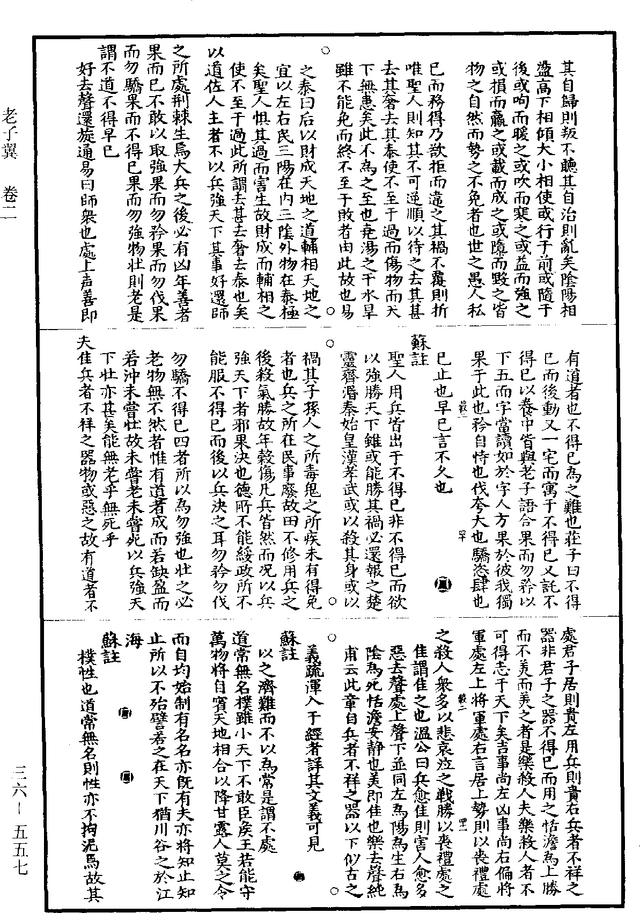 其自歸則叛不聽其自治則亂矣陰陽相
盪高下相傾大小相使或行于前或隨于
後或呴而暖之或吹而寒之或益而強之
或損而羸之或載而成之或隳而毀之皆
物之自然而勢之不免者也世之愚人私
己而務得乃欲拒而違之其禍不覆則折
唯聖人則知其不可逆順以待之去其甚
去其奢去其泰使不至于過而傷物而天
下無患矣此不為之至也堯湯之干水旱
雖不能免而終不至于敗者由此故也易
之泰曰后以財成天地之道輔相天地之
宜以左右民三陽在內三陰外物在泰極
矣聖人懼其過而害生故財成而輔相之
使不至于過此所謂去甚去奢去泰也矣
以道佐人主者不以兵強天下其事好還師
之所處荊棘生焉大兵之後必有凶年善者
果而已不敢以取強果而勿矜果而勿伐果
而勿驕果而不得已果而勿強物壯則老是
謂不道不得早已
好去聲還旋通易曰師衆也處上声善即
有道者也不得已為之難也莊子曰不得
已而後動又一宅而寓于不得已又託不
得已以養中皆與老子語合果而勿矜以
下五而字當讀如於字人方果於彼我獨
果于此也矜自恃也伐夸大也驕恣肆也
已止也早已言不久也
蘇註
聖人用兵皆出于不得已非不得已而欲
以強勝天下雖或能勝其禍必還報之楚
靈齊湣秦始皇漢孝武或以殺其身或以
禍其子孫人之所毒鬼之所疾未有得免
者也兵之所在民事廢故田不修用兵之
後殺氣勝故年穀傷凡兵皆然而況以兵
強天下者邪果決也德所不能綏政所不
能服不得已而後以兵決之耳勿矜勿伐
勿驕不得已四者所以為勿強也壯之必
老物無不然者惟有道者成而若缺盈而
若沖未嘗壯故未嘗老未嘗死以兵強天
下壯亦甚矣能無老乎無死乎
夫佳兵者不祥之器物或惡之故有道者不
處君子居則貴左用兵則貴右兵者不祥之
器非君子之器不得已而用之恬澹為上勝
而不美而美之者是樂殺人夫樂殺人者不
可得志于天下矣吉事尚左凶事尚右偏將
軍處左上將軍處右言居上勢則以喪禮處
之殺人衆多以悲哀泣之戰勝以喪禮處之
佳謂佳之也溫公曰兵愈佳則害人愈多
惡去聲處上聲下並同左為陽為生右為
陰為死恬澹安静也美即佳也樂去聲純
甫云此章自兵者不祥之器以下似古之
義疏渾入于經者詳其文義可見
蘇註
以之濟難而不以為常是謂不處
道常無名樸雖小天下不敢臣侯王若能守
萬物將自賓天地相合以降甘露人莫之令
而自均始制有名名亦既有夫亦將知止知
止所以不殆譬若之在天下猶川谷之於江
海
蘇註
樸性也道常無名則性亦不拘泥焉故其
老子翼 卷二
三六—五五七